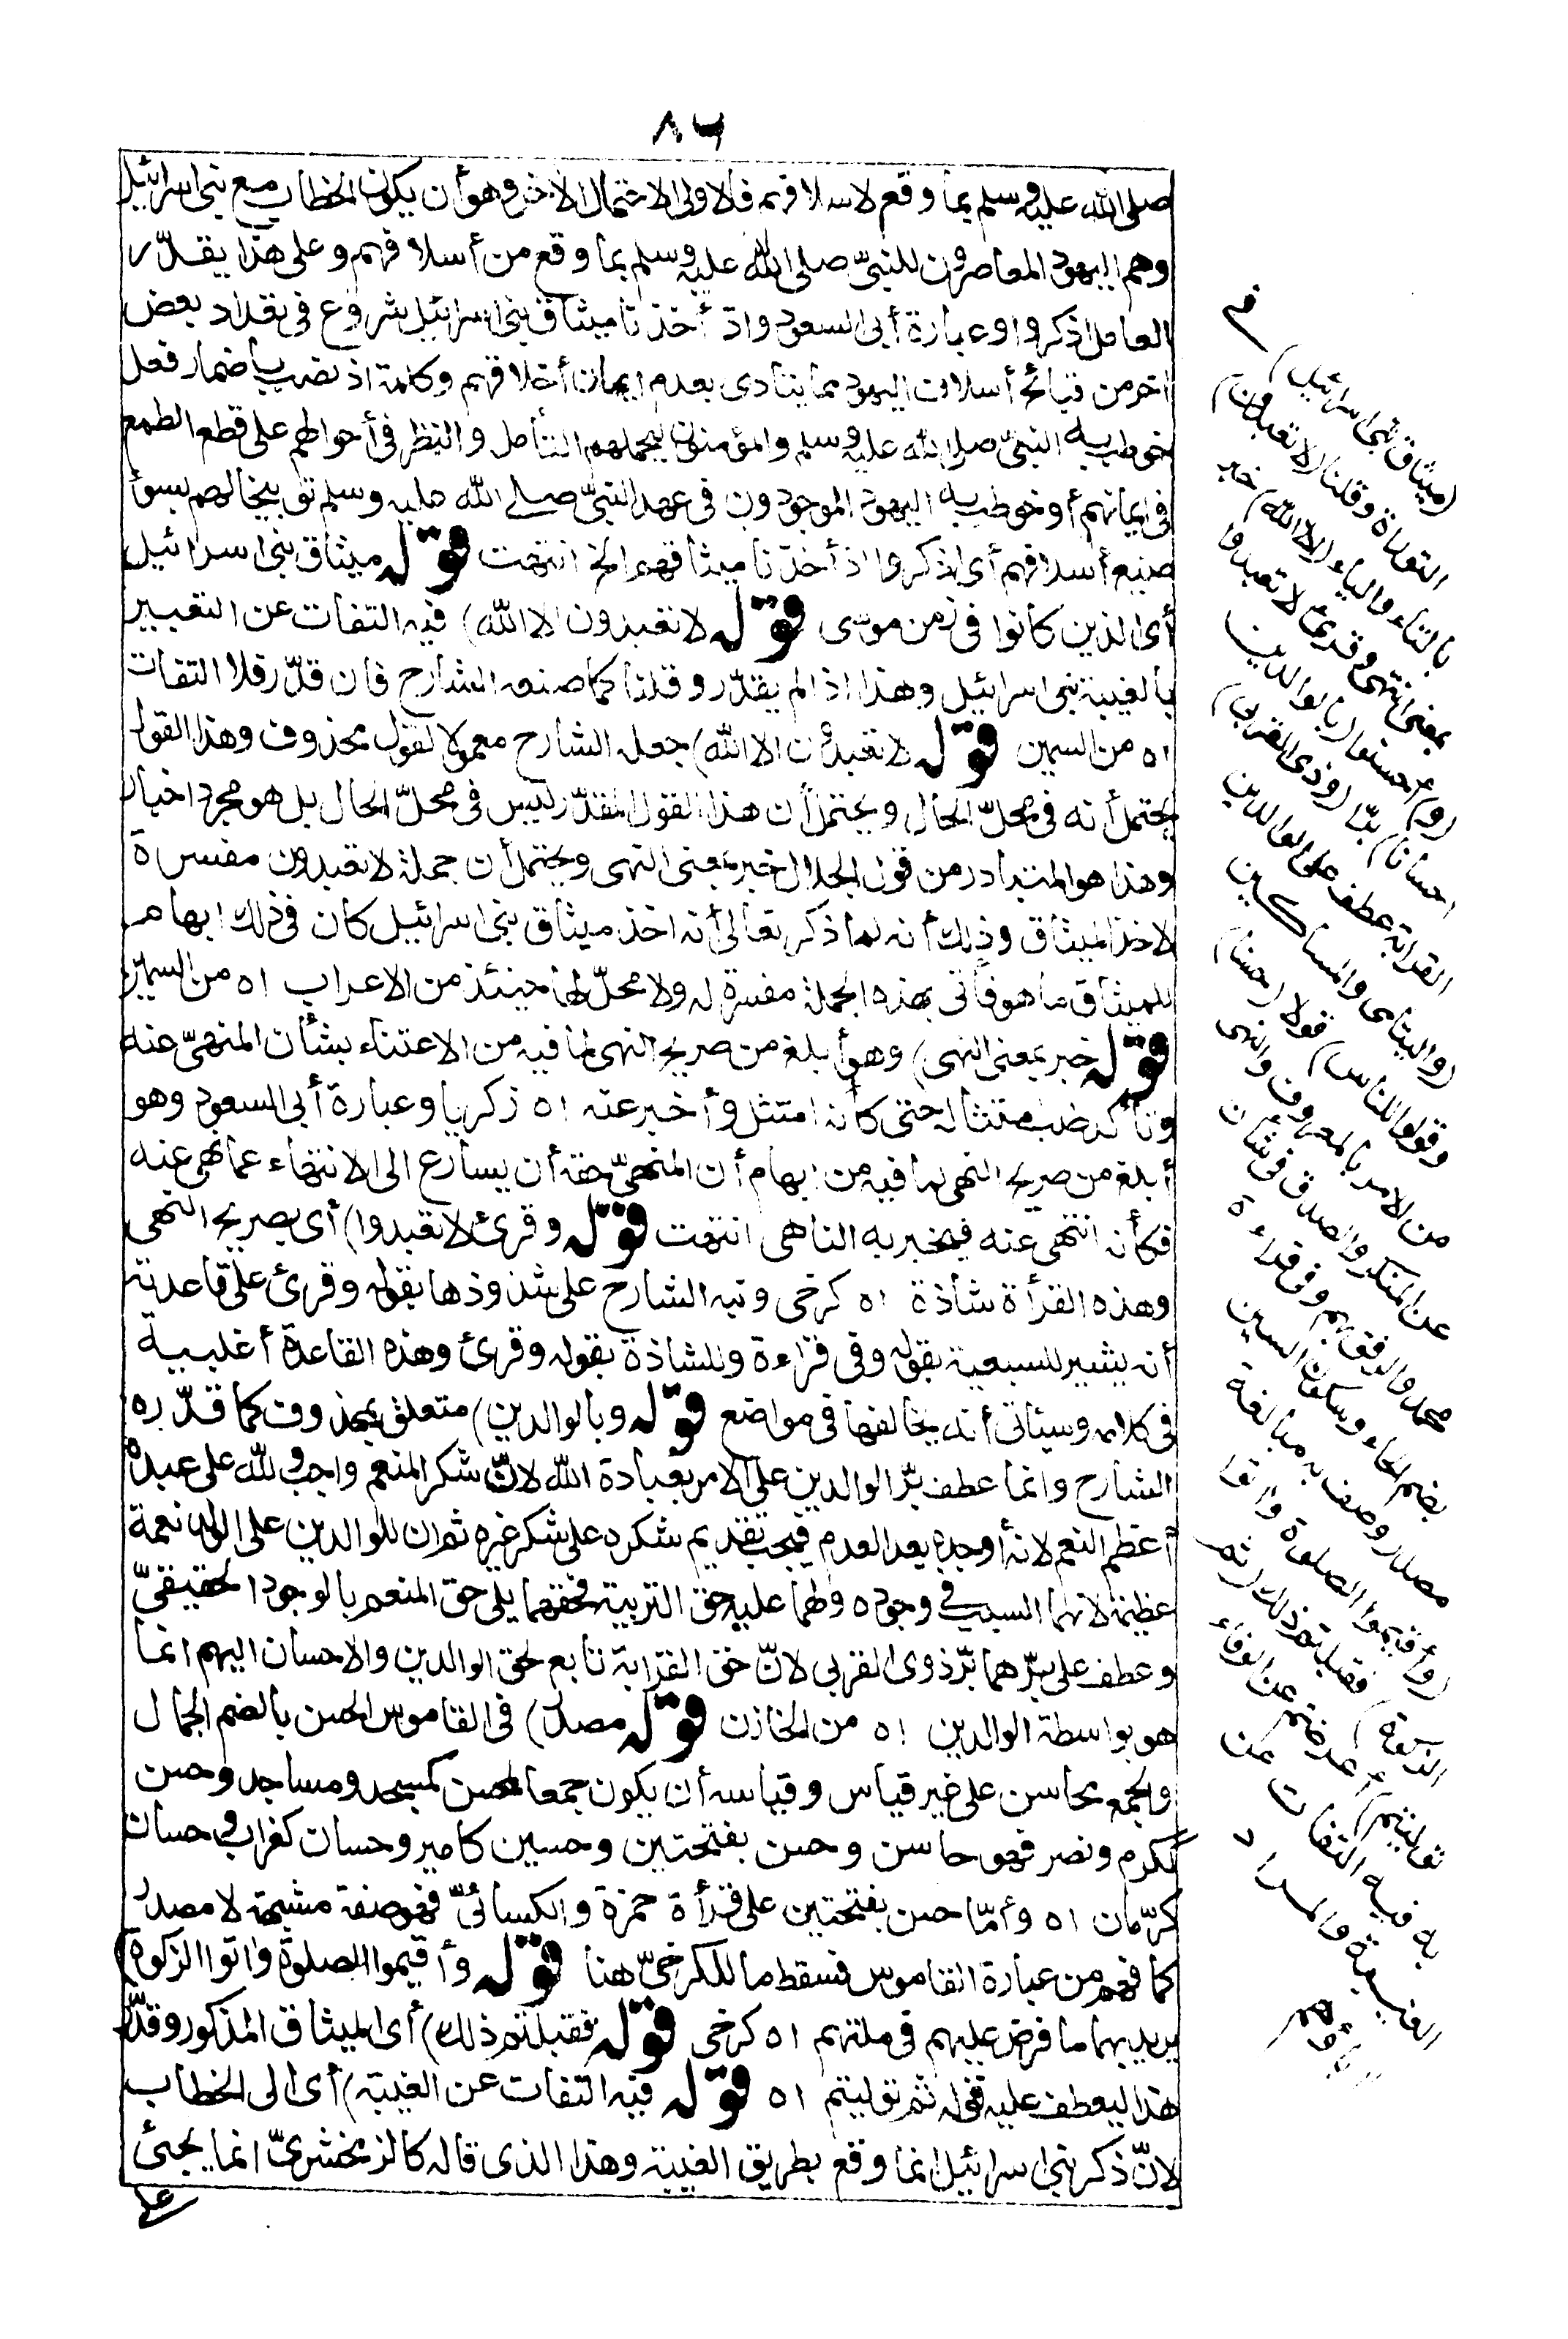 ٨٦
صلى الله عليه وسلم بما وقع لاسلافهم فالاولى الاحتمال الاخر وهو أن يكون الخطاب مع بنى اسرائيل
وهم اليهود المعاصرون للنبىّ صلى الله عليه وسلم بما وقع من أسلافهم وعلى هذا يقدّر
العامل اذكروا وعبارة أبى السعود واذ أخذنا ميثاق بنى اسرائيل شروع فى تعداد بعض
اخر من قبائح أسلاف اليهود مما ينادى بعدم ايمان أخلافهم وكلمة اذ نصب باضمار فعل
خوطب به النبىّ صلى الله عليه وسلم والمؤمنون ليحملهم التأمل والنظر فى أحوالهم على قطع الطمع
فى ايمانهم أو خوطب به اليهود الموجودون فى عهد النبىّ صلى الله عليه وسلم توبيخا لهم بسوء
صنيع أسلافهم أى اذكروا اذ أخذنا ميثاقهم الخ انتهت قوله ميثاق بنى اسرائيل
أى الذين كانوا فى زمن موسى قوله لا تعبدون الا الله) فيه التفات عن التعبير
بالغيبة بنى اسرائيل وهذا اذا لم يقدّر وقلنا كما صنعه الشارح فان قدّر فلا التفات
اه من السمين قوله لا تعبدون الا الله) جعله الشارح معمولا لقول محذوف وهذا القول
يحتمل أنه فى محلّ الحال ويحتمل أن هذا القول المقدّر ليس فى محلّ الحال بل هو مجرد اخبار
وهذا هو المتبادر من قول الجلال خبر بمعنى النهى ويحتمل أن جملة لا تعبدون مفسرة
لاخذ الميثاق وذلك أنه لما ذكر تعالى أنه اخذ ميثاق بنى اسرائيل كان فى ذلك ابهام
للميثاق ما هو فأتى بهذه الجملة مفسرة له ولا محلّ لها حينئذ من الاعراب اه من السمين
قوله خبر بمعنى النهى) وهو أبلغ من صريح النهى لما فيه من الاعتناء بشأن المنهىّ عنه
وتأكد طلب امتثاله حتى كأنه امتثل وأخبر عنه اه زكريا وعبارة أبى السعود وهو
أبلغ من صريح النهى لما فيه من ايهام أن المنهىّ حقه أن يسارع الى الانتهاء عما نهى عنه
فكأنه انتهى عنه فيخبر به الناهى انتهت قوله وقرئ لا تعبدوا) أى بصريح النهى
وهذه القرأة شاذة اه كرخى ونبه الشارح على شذوذها بقوله وقرئ على قاعدته
أنه يشير للسبعية بقوله وفى قراءة وللشاذة بقوله وقرئ وهذه القاعدة أغلبية
فى كلامه وسيأتى أنه يخالفها فى مواضع قوله وبالوالدين) متعلق بمحذوف كما قدّره
الشارح وانما عطف برّ الوالدين على الامر بعبادة الله لانّ شكر المنعم واجب ولله على عبده
أعظم النعم لانه أوجده بعد العدم فيجب تقديم شكره على شكر غيره ثم ان للوالدين على الولد نعمة
عظيمة لانهما السبب فى وجوده ولهما عليه حق التربية فحقهما يلى حق المنعم بالوجود الحقيقىّ
وعطف على برّهما برّ ذوى القربى لانّ حق القرابة تابع لحق الوالدين والاحسان اليهم انما
هو بواسطة الوالدين اه من الخازن قوله مصدر) فى القاموس الحسن بالضم الجمال
والجمع محاسن على غير قياس وقياسه أن يكون جمعا لمحسن كمسجد ومساجد وحسن
ككرم ونصر فهو حاسن وحسن بفتحتين وحسين كامير وحسان كغراب وحسان
كرّمان اه وأمّا حسن بفتحتين على قرأة حمزة والكسائىّ فهو صفة مشبهة لا مصدر
كما فهم من عبارة القاموس فسقط ما للكرخىّ هنا قوله وأقيموا الصلوة واتوا الزكوة)
يريد بهما ما فرض عليهم فى ملتهم اه كرخى قوله فقبلتم ذلك) أى الميثاق المذكور وقدّر
هذا ليعطف عليه قوله ثم توليتم اه قوله فيه التفات عن الغيبة) أى الى الخطاب
لانّ ذكر بنى اسرائيل انما وقع بطريق الغيبة وهذا الذى قاله كالزمخشرىّ انما يجئ
على
(ميثاق بنى اسرائيل)
التوراة وقلنا (لا تعبدون)
بالتاء والياء (الا الله) خبر
بمعنى النهى وقرئ لا تعبدوا
(و) أحسنوا (بالوالدين
احسانا) برّا (وذى القربى)
القرابة عطف على الوالدين
(واليتامى والمساكين
وقولوا للناس) قولا (حسنا)
من الامر بالمعروف والنهى
عن المنكر والصدق فى شأن
محمد والرفق بهم وفى قراءة
بضم الحاء وسكون السين
مصدر وصف به مبالغة
(وأقيموا الصلوة واتوا
الزكوة) فقبلتم ذلك (ثم
توليتم) أعرضتم عن الوفاء
به فيه التفات عن
الغيبة والمراد
اباؤهم